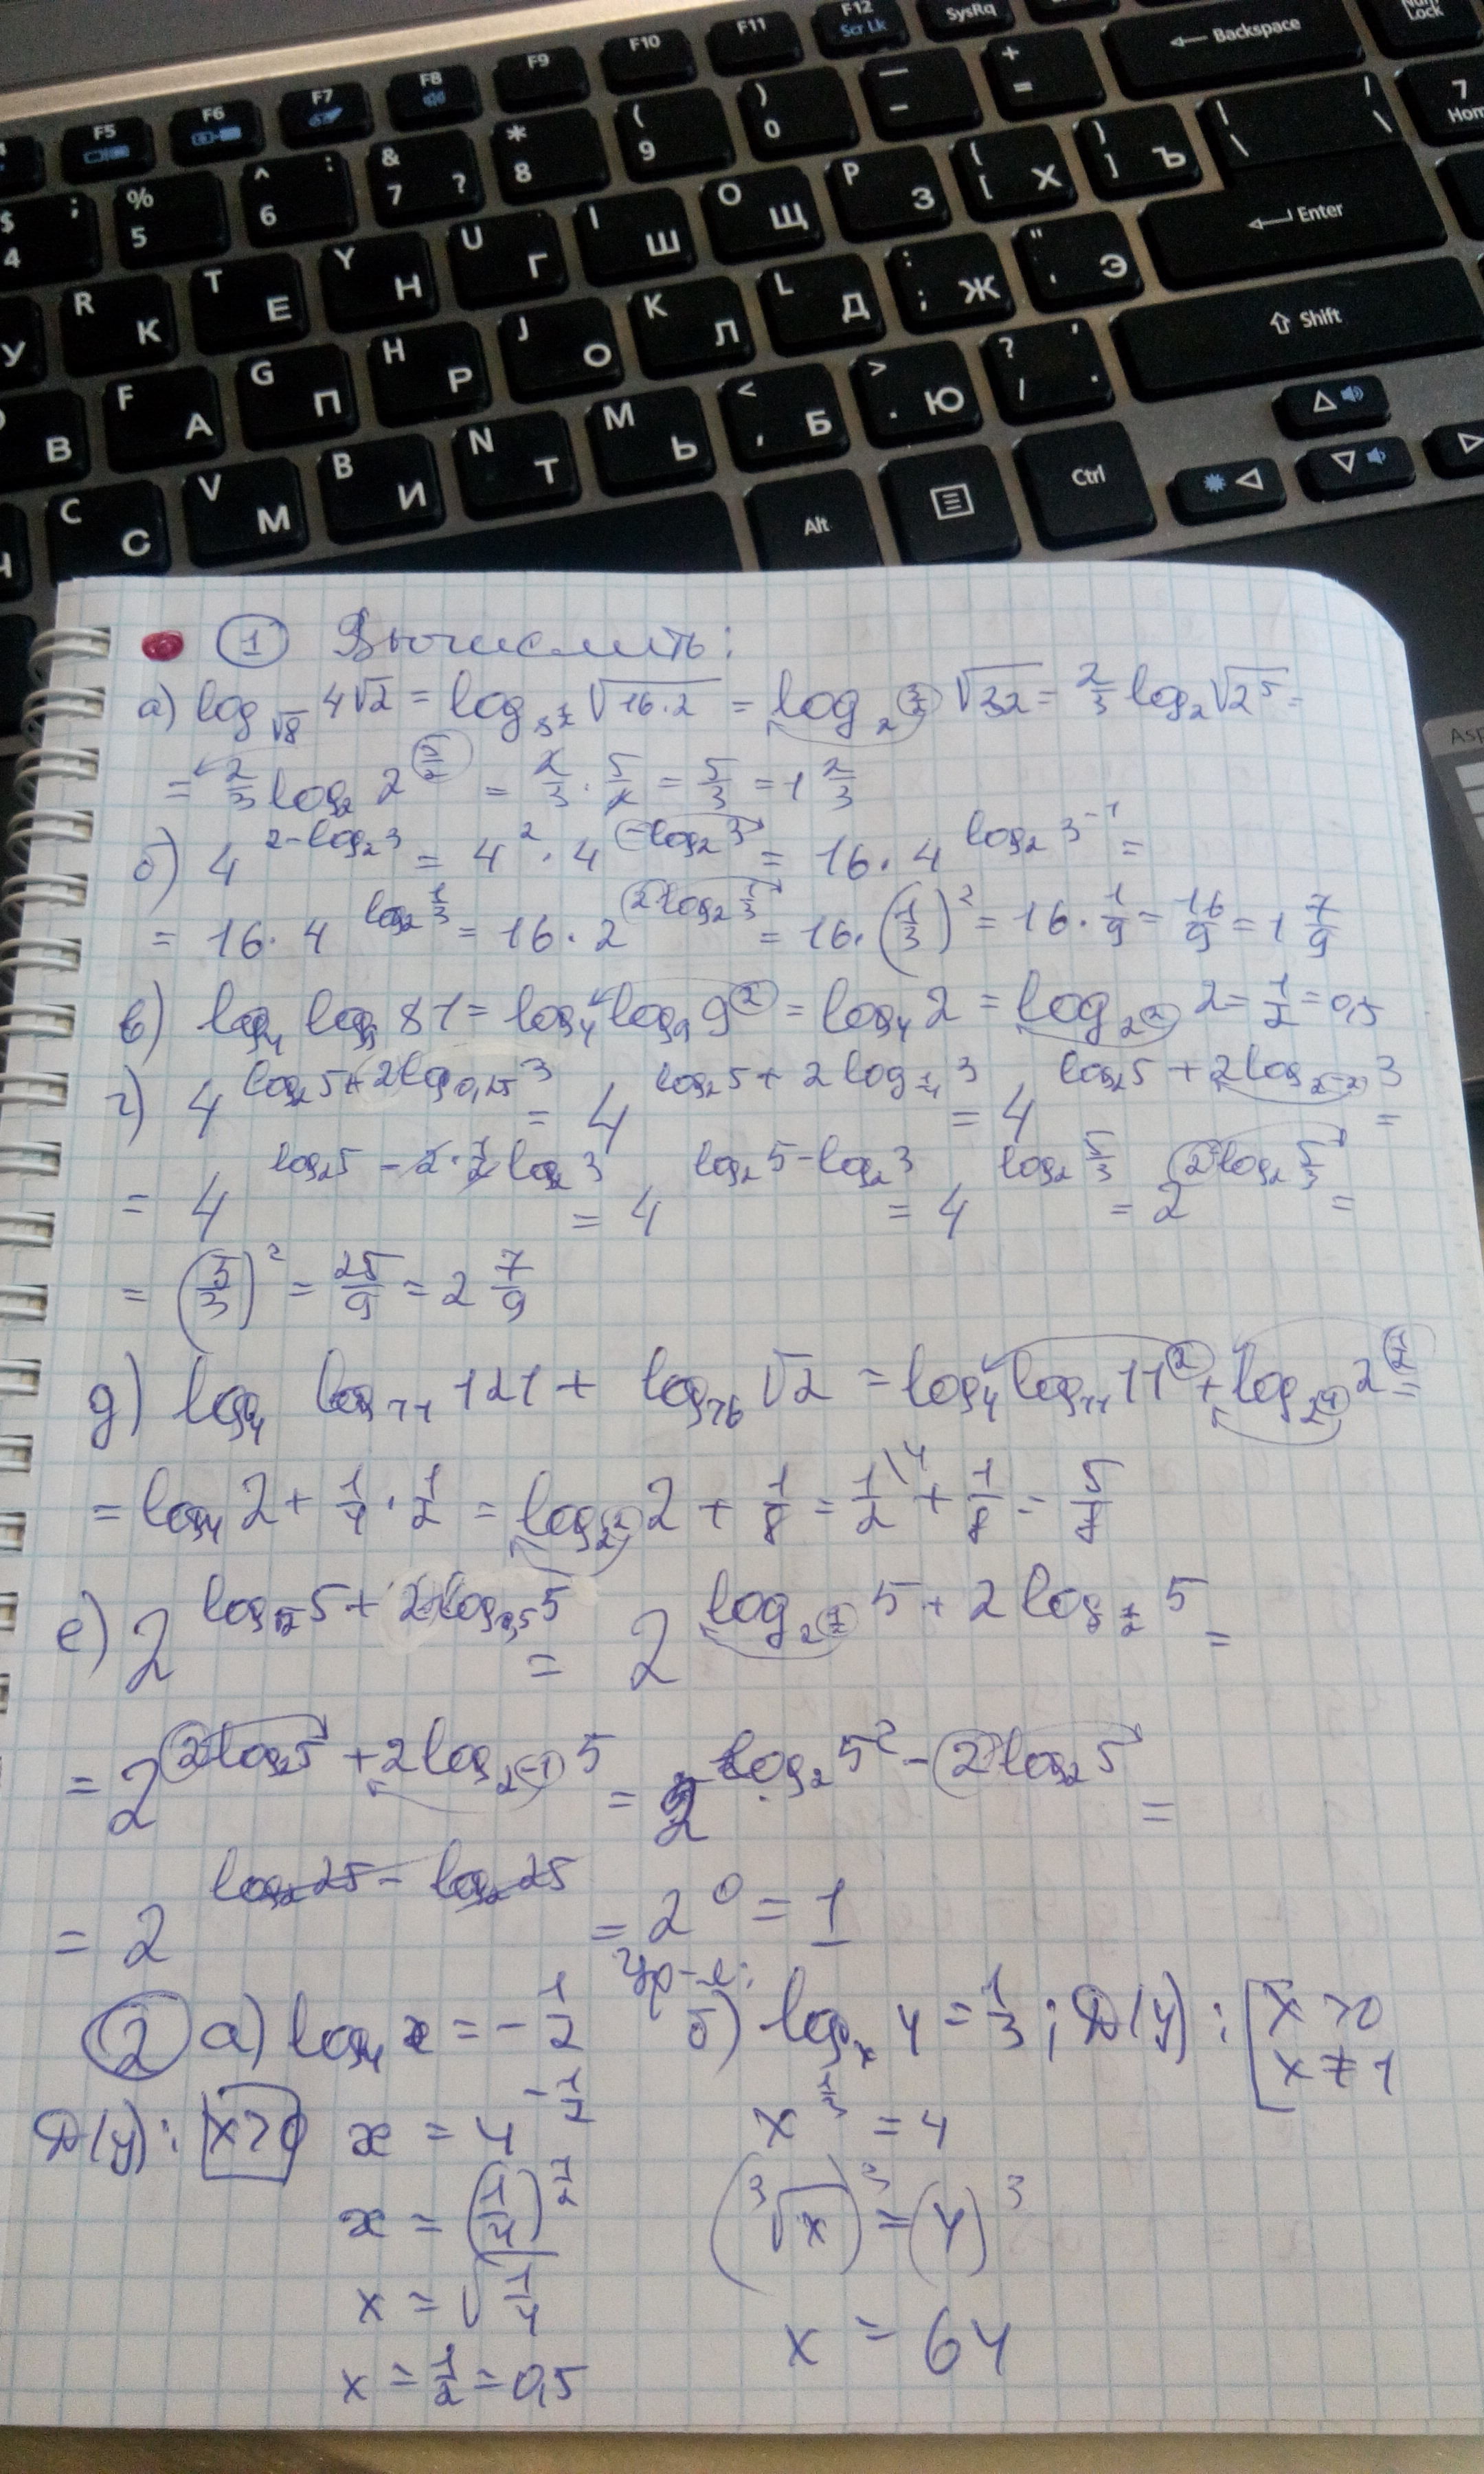 F5 F6 F7 F8 F9 F10 F11 F12 Scr Lk SysRq Num Lock
$ ; 4 % 5 ^ : 6 & 7 ? * 8 ( 9 ) 0 — - + = ← Backspace 7 Home
R К T Е Y Н U Г I Ш O Щ P З { [ Х } ] Ъ | \ / \ ← Enter
У F А G П H Р J О K Л L Д : ; Ж " ' Э
В C С V М B И N Т M Ь < , Б > . Ю ? / , . ⇧ Shift
Ч Alt Ctrl
Asp
① Вычислить:
а) log_√8 4√2 = log_8^½ √(16·2) = log_2^(3/2) √32 = 2/3 log₂√2⁵ =
= 2/3 log₂ 2^(5/2) = 2/3 · 5/2 = 5/3 = 1 2/3
б) 4^(2-log₂3) = 4² · 4^(-log₂3) = 16 · 4^(log₂3⁻¹) =
= 16 · 4^(log₂ 1/3) = 16 · 2^(2log₂ 1/3) = 16 · (1/3)² = 16 · 1/9 = 16/9 = 1 7/9
в) log₄ log₉ 81 = log₄ log₉ 9² = log₄ 2 = log_2² 2 = 1/2 = 0,5
г) 4^(log₂5+2log_0,25 3) = 4^(log₂5+2log_1/4 3) = 4^(log₂5+2log_2⁻² 3) =
= 4^(log₂5 - 2·1/2 log₂3) = 4^(log₂5-log₂3) = 4^(log₂ 5/3) = 2^(2log₂ 5/3) =
= (5/3)² = 25/9 = 2 7/9
д) log₄ log₁₁ 121 + log₁₆ √2 = log₄ log₁₁ 11² + log_2⁴ 2^½ =
= log₄ 2 + 1/4 · 1/2 = log_2² 2 + 1/8 = 1/2 \4 + 1/8 = 5/8
е) 2^(log_√2 5 + 2log_0,5 5) = 2^(log_2^½ 5 + 2log_½ 5) =
= 2^(2log₂5 + 2log_2⁻¹ 5) = 2^(log₂5² - 2log₂5) =
= 2^(log₂25 - log₂25) = 2⁰ = 1
Ур-е:
② а) log₄ x = -1/2 б) log_x 4 = 1/3 ; D(y) : [x > 0
x ≠ 1
D(y) : x>0 x = 4^(-1/2) x^(1/3) = 4
x = (1/4)^(1/2) (³√x)³ = (4)³
x = √(1/4)
x = 64
x = 1/2 = 0,5